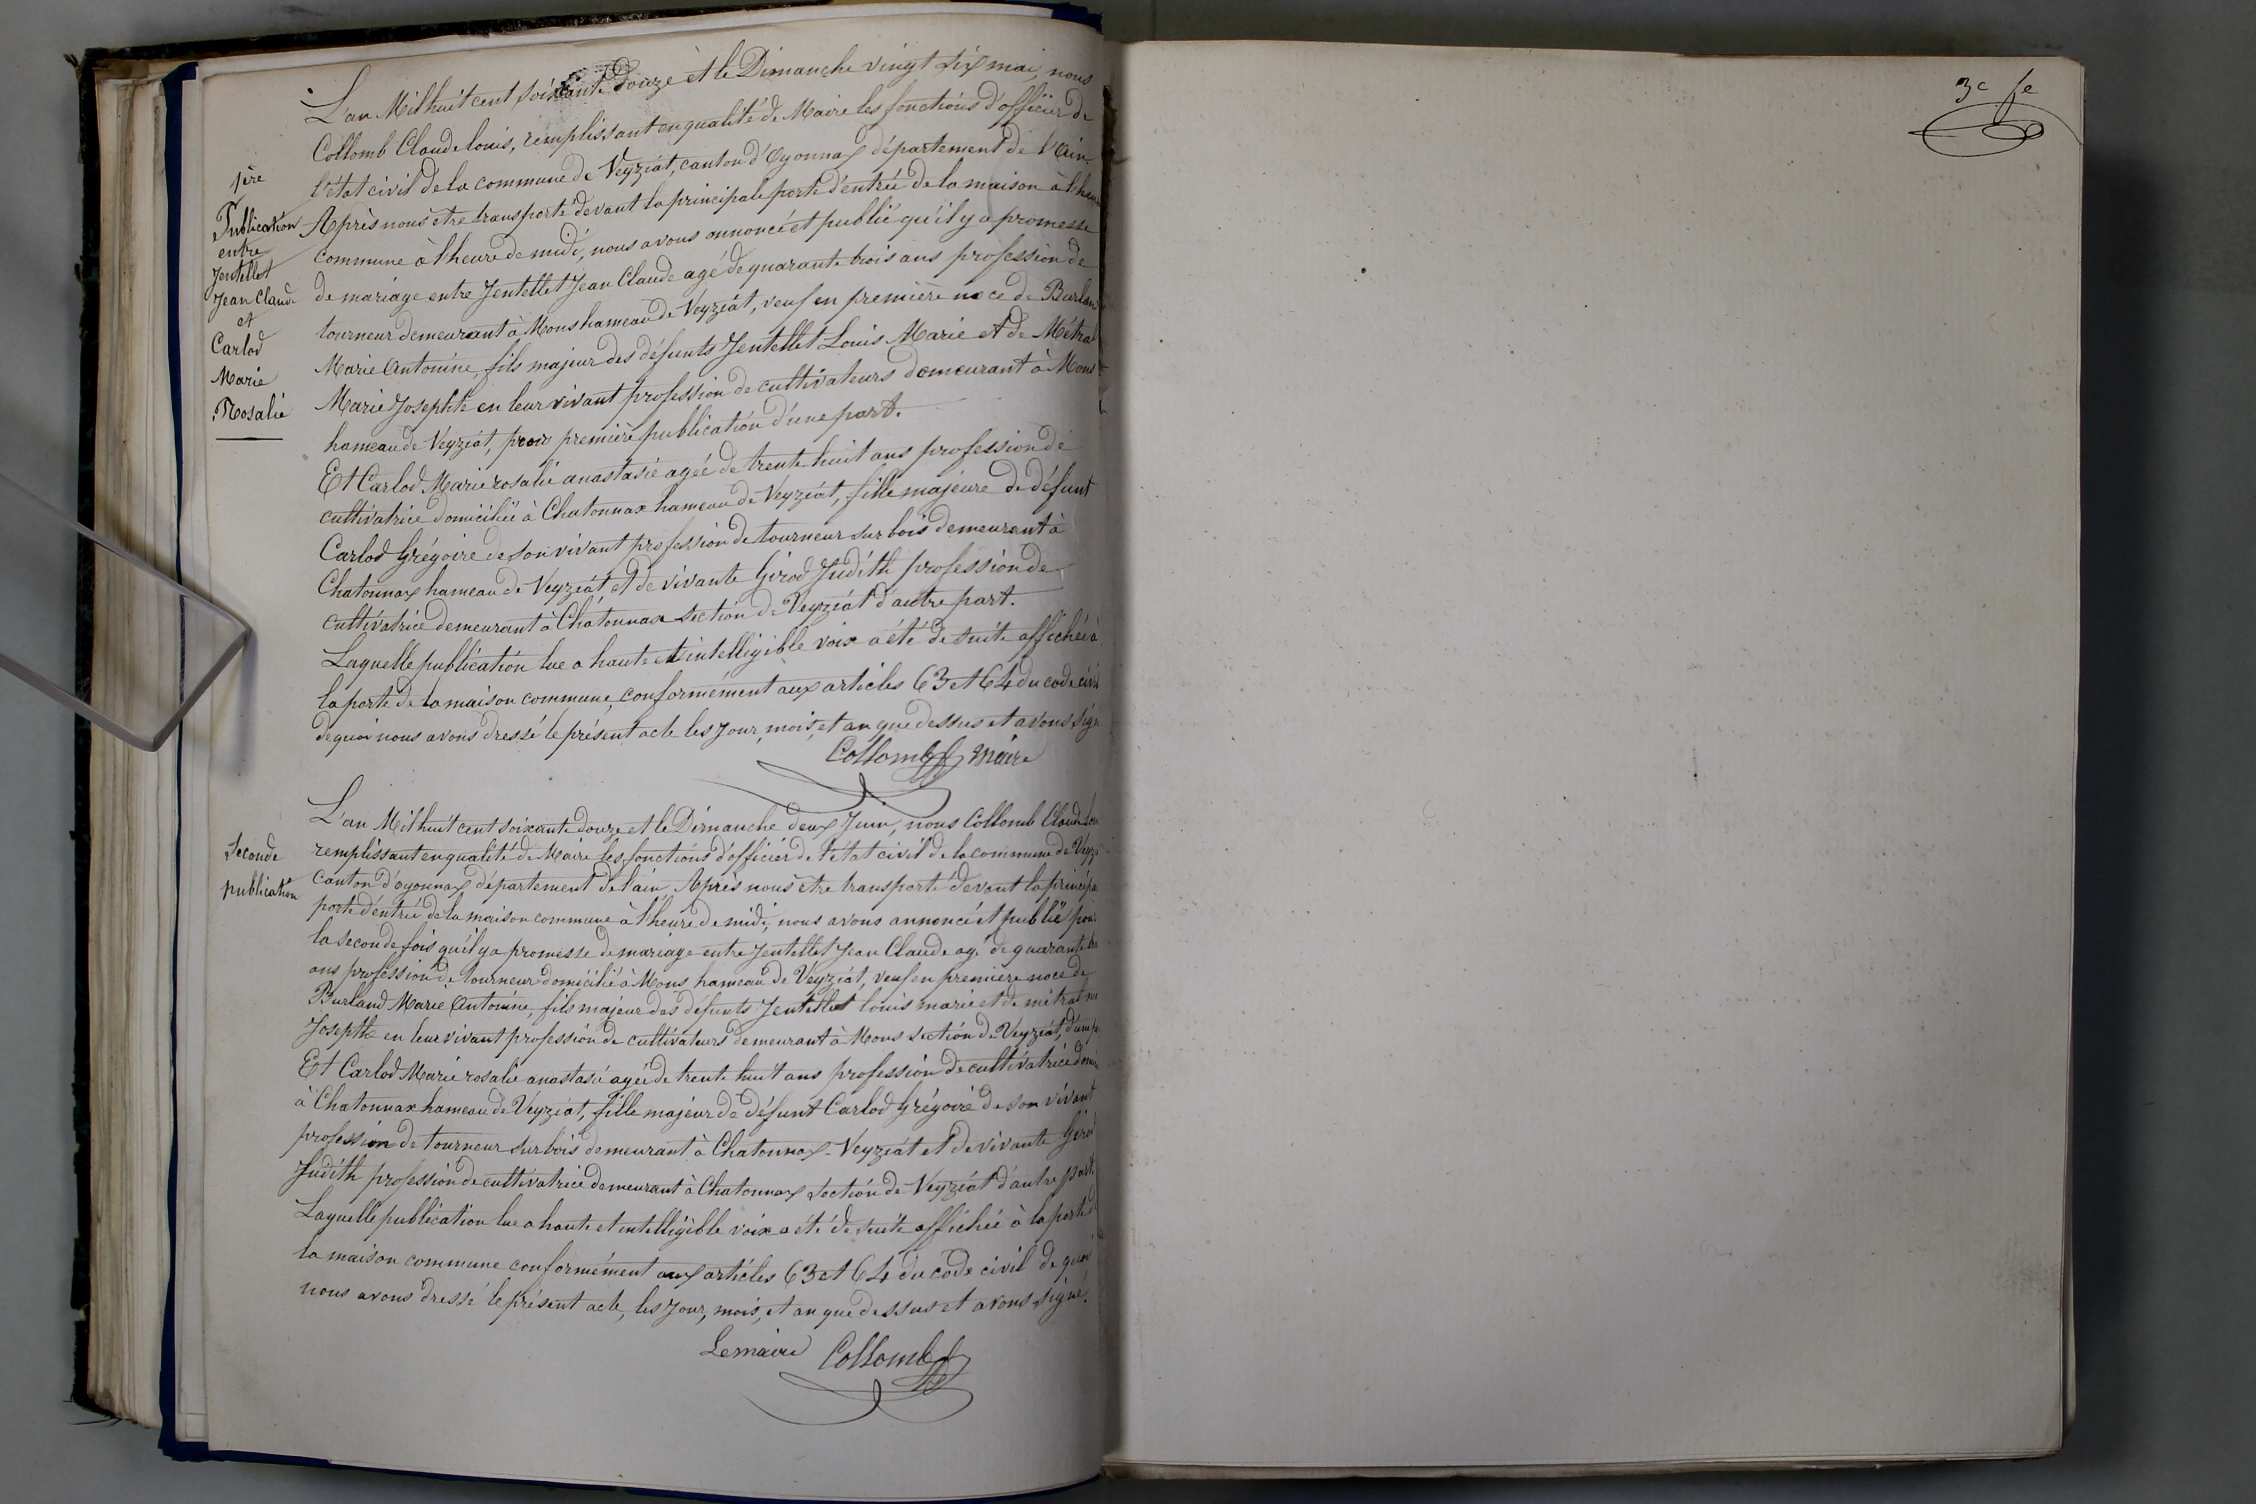 L'an Mil huit cent soixante douze et le Dimanche vingt six mai, nous
Collomb Claude louis, remplissant en qualité de Maire les fonctions d'officier de
l'état civil de la commune de Veyziat, canton d'Oyonnax département de l'Ain
1ère
Publication
entre
Jentellet
Jean Claude
et
Carlod
Marie
Rosalie
Après nous être transporté devant la principale porte d'entrée de la maison
commune à l'heure de midi, nous avons annoncé et publié qu'il y a promesse
de mariage entre Jentellet Jean Claude agé de quarante trois ans profession de
tourneur demeurant à Mons hameau de Veyziat, veuf en première noce de Burland
Marie Antonine, fils majeur des défunts Jentellet Louis Marie et de Métral
Marie Josephte en leur vivant profession de cultivateurs demeurant à Mons
hameau de Veyziat, pour première publication d'une part.
Et Carlod Marie rosalie anastasie agée de trente huit ans profession de
cultivatrice domiciliée à Chatonnax hameau de Veyziat, fille majeure de défunt
Carlod Grégoire de son vivant profession de tourneur sur bois demeurant à
Chatonnax hameau de Veyziat et de vivante Girod Judith profession de
cultivatrice demeurant à Chatonnax section de Veyziat d'autre part.
Laquelle publication lue a haute et intelligible voix a été de suite affichée à
la porte de la maison commune, conformément aux articles 63 et 64 du code civil
de quoi nous avons dressé le présent acte les jour, mois, et an que dessus et avons signé
Collomb maire
L'an Mil huit cent soixante douze et le Dimanche deux Juin, nous Collomb Claude Lou
Seconde
publication
remplissant en qualité de Maire les fonctions d'officier de l'état civil de la commune de Veyzi
canton d'oyonnax département de l'ain, Après nous être transporté devant la principa
porte d'entrée de la maison commune à l'heure de midi, nous avons annoncé et publié pou
la seconde fois qu'il y a promesse de mariage entre Jentellet Jean Claude agé de quarante tro
ans profession de tourneur domicilié à Mons hameau de Veyziat, veuf en première noce de
Burland Marie Antonine, fils majeur des défunts Jentellet louis marie et de métral ma
Josephte en leur vivant profession de cultivateurs demeurant à Mons section de Veyziat, d'une p
Et Carlod Marie rosalie anastasie agée de trente huit ans profession de cultivatrice domi
à Chatonnax hameau de Veyziat, fille majeur de défunt Carlod Grégoire de son vivant
profession de tourneur sur bois demeurant à Chatonnax-Veyziat et de vivante Girod
Judith profession de cultivatrice demeurant à Chatonnax section de Veyziat d'autre part.
Laquelle publication lue a haute et intelligible voix a été de suite affichée à la porte d
la maison commune conformément aux articles 63 et 64 du code civil de quoi
nous avons dressé le présent acte, les jour, mois, et an que dessus et avons signé.
Le maire Collomb
3e fe